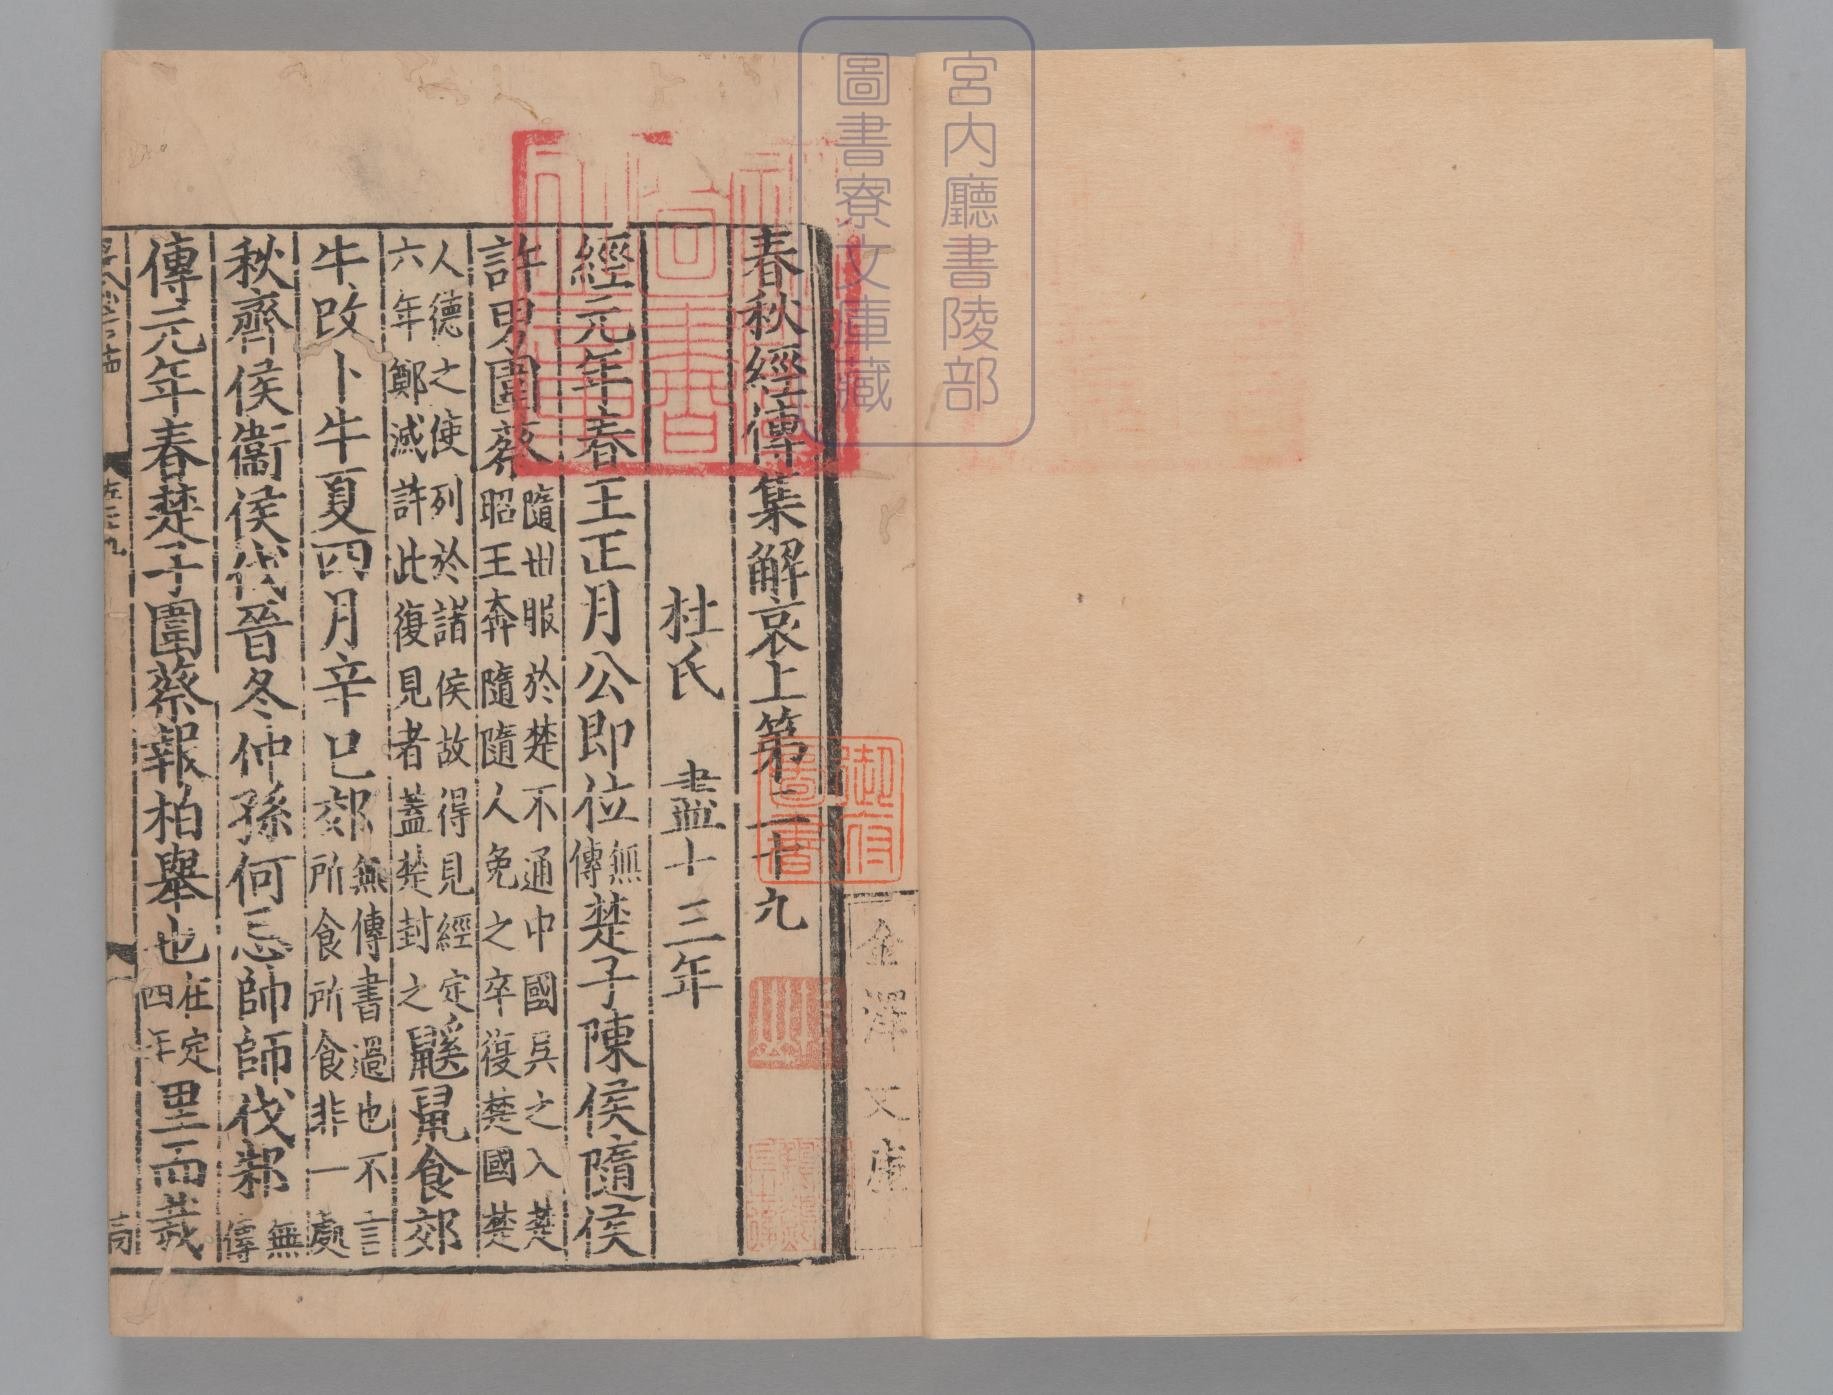 宮内廳書陵部
圖書寮文庫藏
金澤文庫
御府
圖書
春秋經傳集解哀上第二十九
杜氏 盡十三年
經元年春王正月公即位無傳楚子陳侯隨侯
許男圍蔡隨世服於楚不通中國吳之入楚昭王奔隨隨人免之卒復楚國楚
人德之使列於諸侯故得見經定六年鄭滅許此復見者蓋楚封之鼷鼠食郊
牛改卜牛夏四月辛巳郊無傳書過也不言所食所食非一處
秋齊侯衞侯伐晉冬仲孫何忌帥師伐邾無傳
傳元年春楚子圍蔡報柏舉也在定四年里而栽